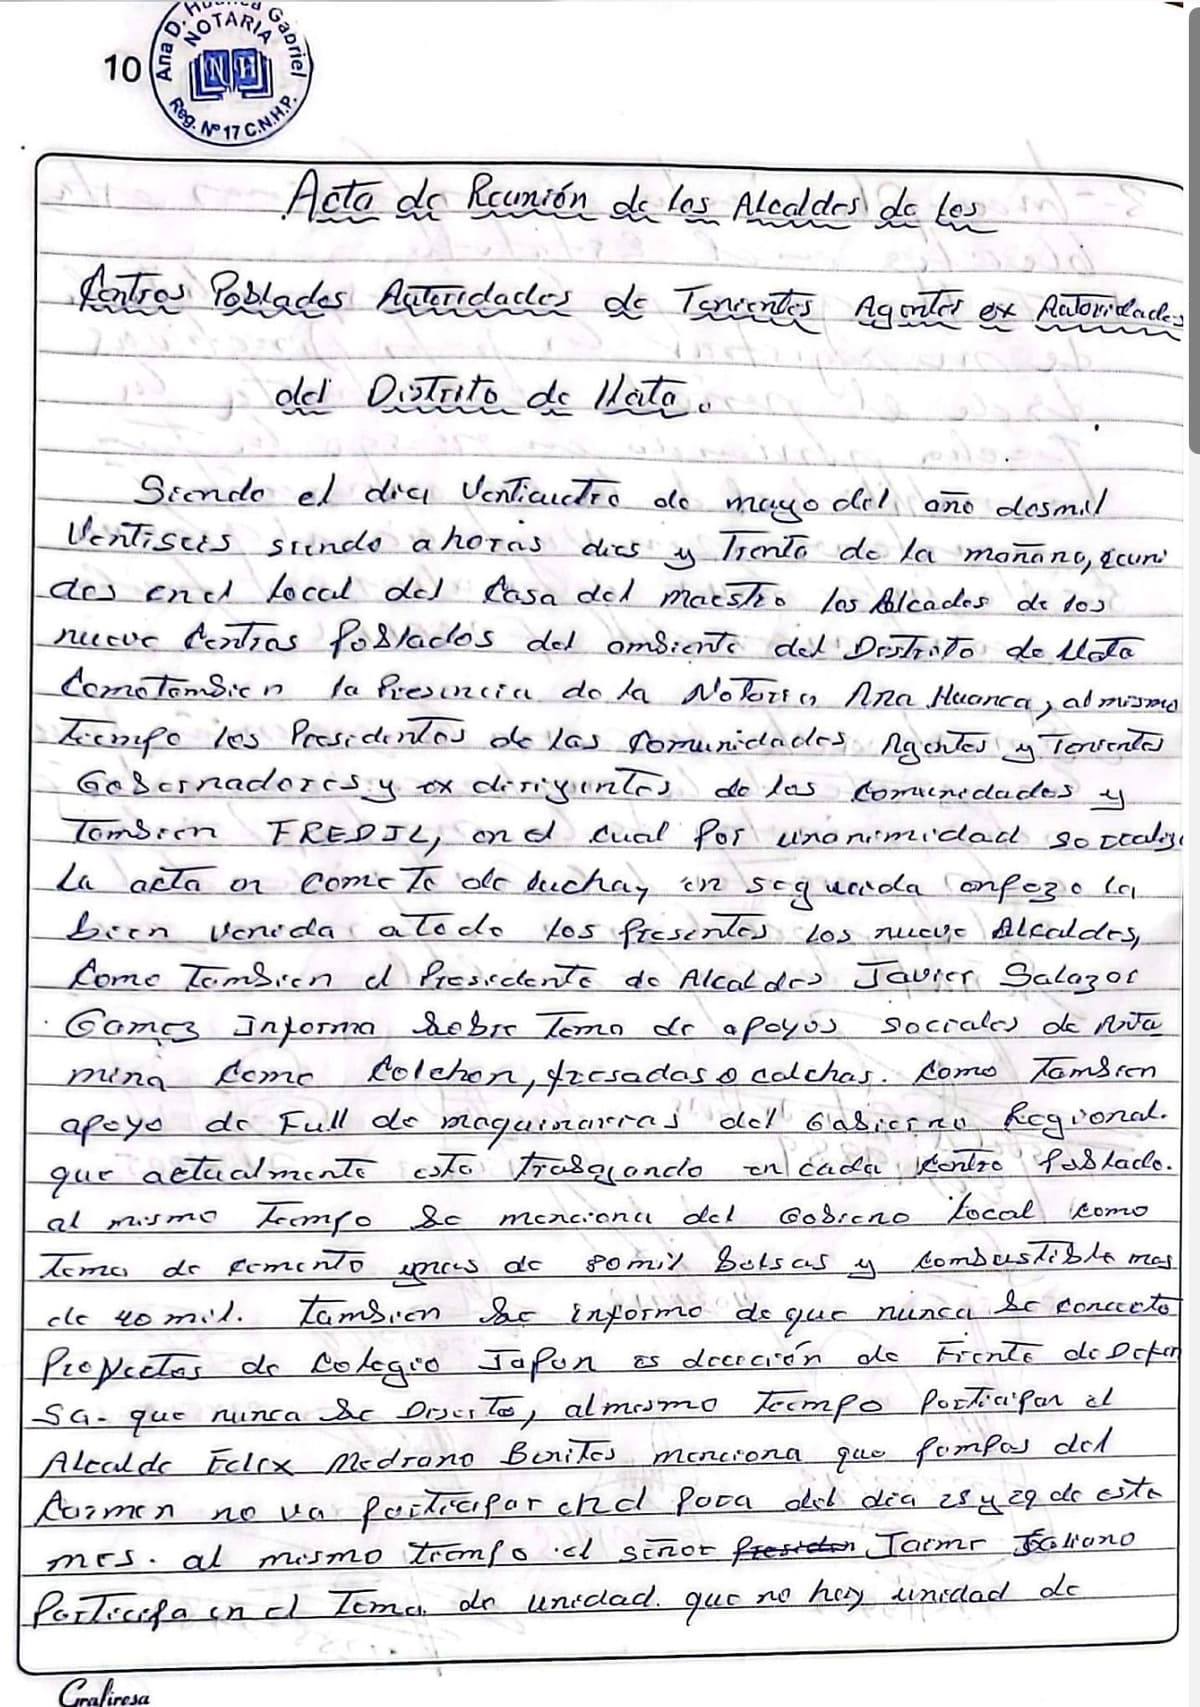 10
Ana D. Huanca Gabriel
NOTARIA
NH
Reg. Nº 17 C.N.H.P.
Acta de Reunión de los Alcaldes de los
Centros Poblados Autoridades de Tenientes Agentes ex Autoridades
del Distrito de Llata.
Siendo el dia Venticuatro de mayo del año dosmil
Ventiseis siendo a horas dies y Trenta de la mañana, reuni
dos en el Local del Casa del maestro los Alcades de los
nueve Centros Poblados del ambiente del Distrito de Llata
Comotambien la Presencia de la Notoria Ana Huanca, al mismo
tiempo los Presidentes de las Comunidades Agentes y Tenientes
Gobernadores y ex dirigentes de las comunidades y
Tambien FREDIL, en el cual por unanimidad se realiza
La acta en comete de lucha y en seguida enpezo la
bien venida a todo los presentes los nueve Alcaldes,
Como Tambien el Presidente de Alcaldes Javier Salazar
Gomez Informa Sobre Tema de apoyos sociales de Anta
mina Como Colchon, fresadas o calchas. Como Tambien
apoyo de Full de maquinarias del Gobierno Regional.
que actualmente esta trabajando en cada Centro Poblado.
al mismo tiempo Se menciona del Gobieno Local como
Tema de cemento de 80 mil Bolsas y combustible mas
de 40 mil. También Se informo de que nunca Se concreto
Proyectos de Colegio Japon es dececión de Frente de Defen
sa. que nunca Se , al mismo tiempo Participan el
Alcalde Felix Medrano Benites menciona que Pampas del
Carmen no va participar en el paro del dia 28 y 29 de este
mes. al mismo tiempo el señor Jaime
Participa en el Tema de unidad. que no hay unidad de
Grafinesa